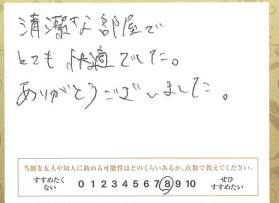 清潔な部屋で
とても快適でした。
ありがとうございました。
当館を友人や知人に勧める可能性はどのくらいあるか、点数で教えてください。
すすめたく
ない
0 1 2 3 4 5 6 7 8 9 10
ぜひ
すすめたい